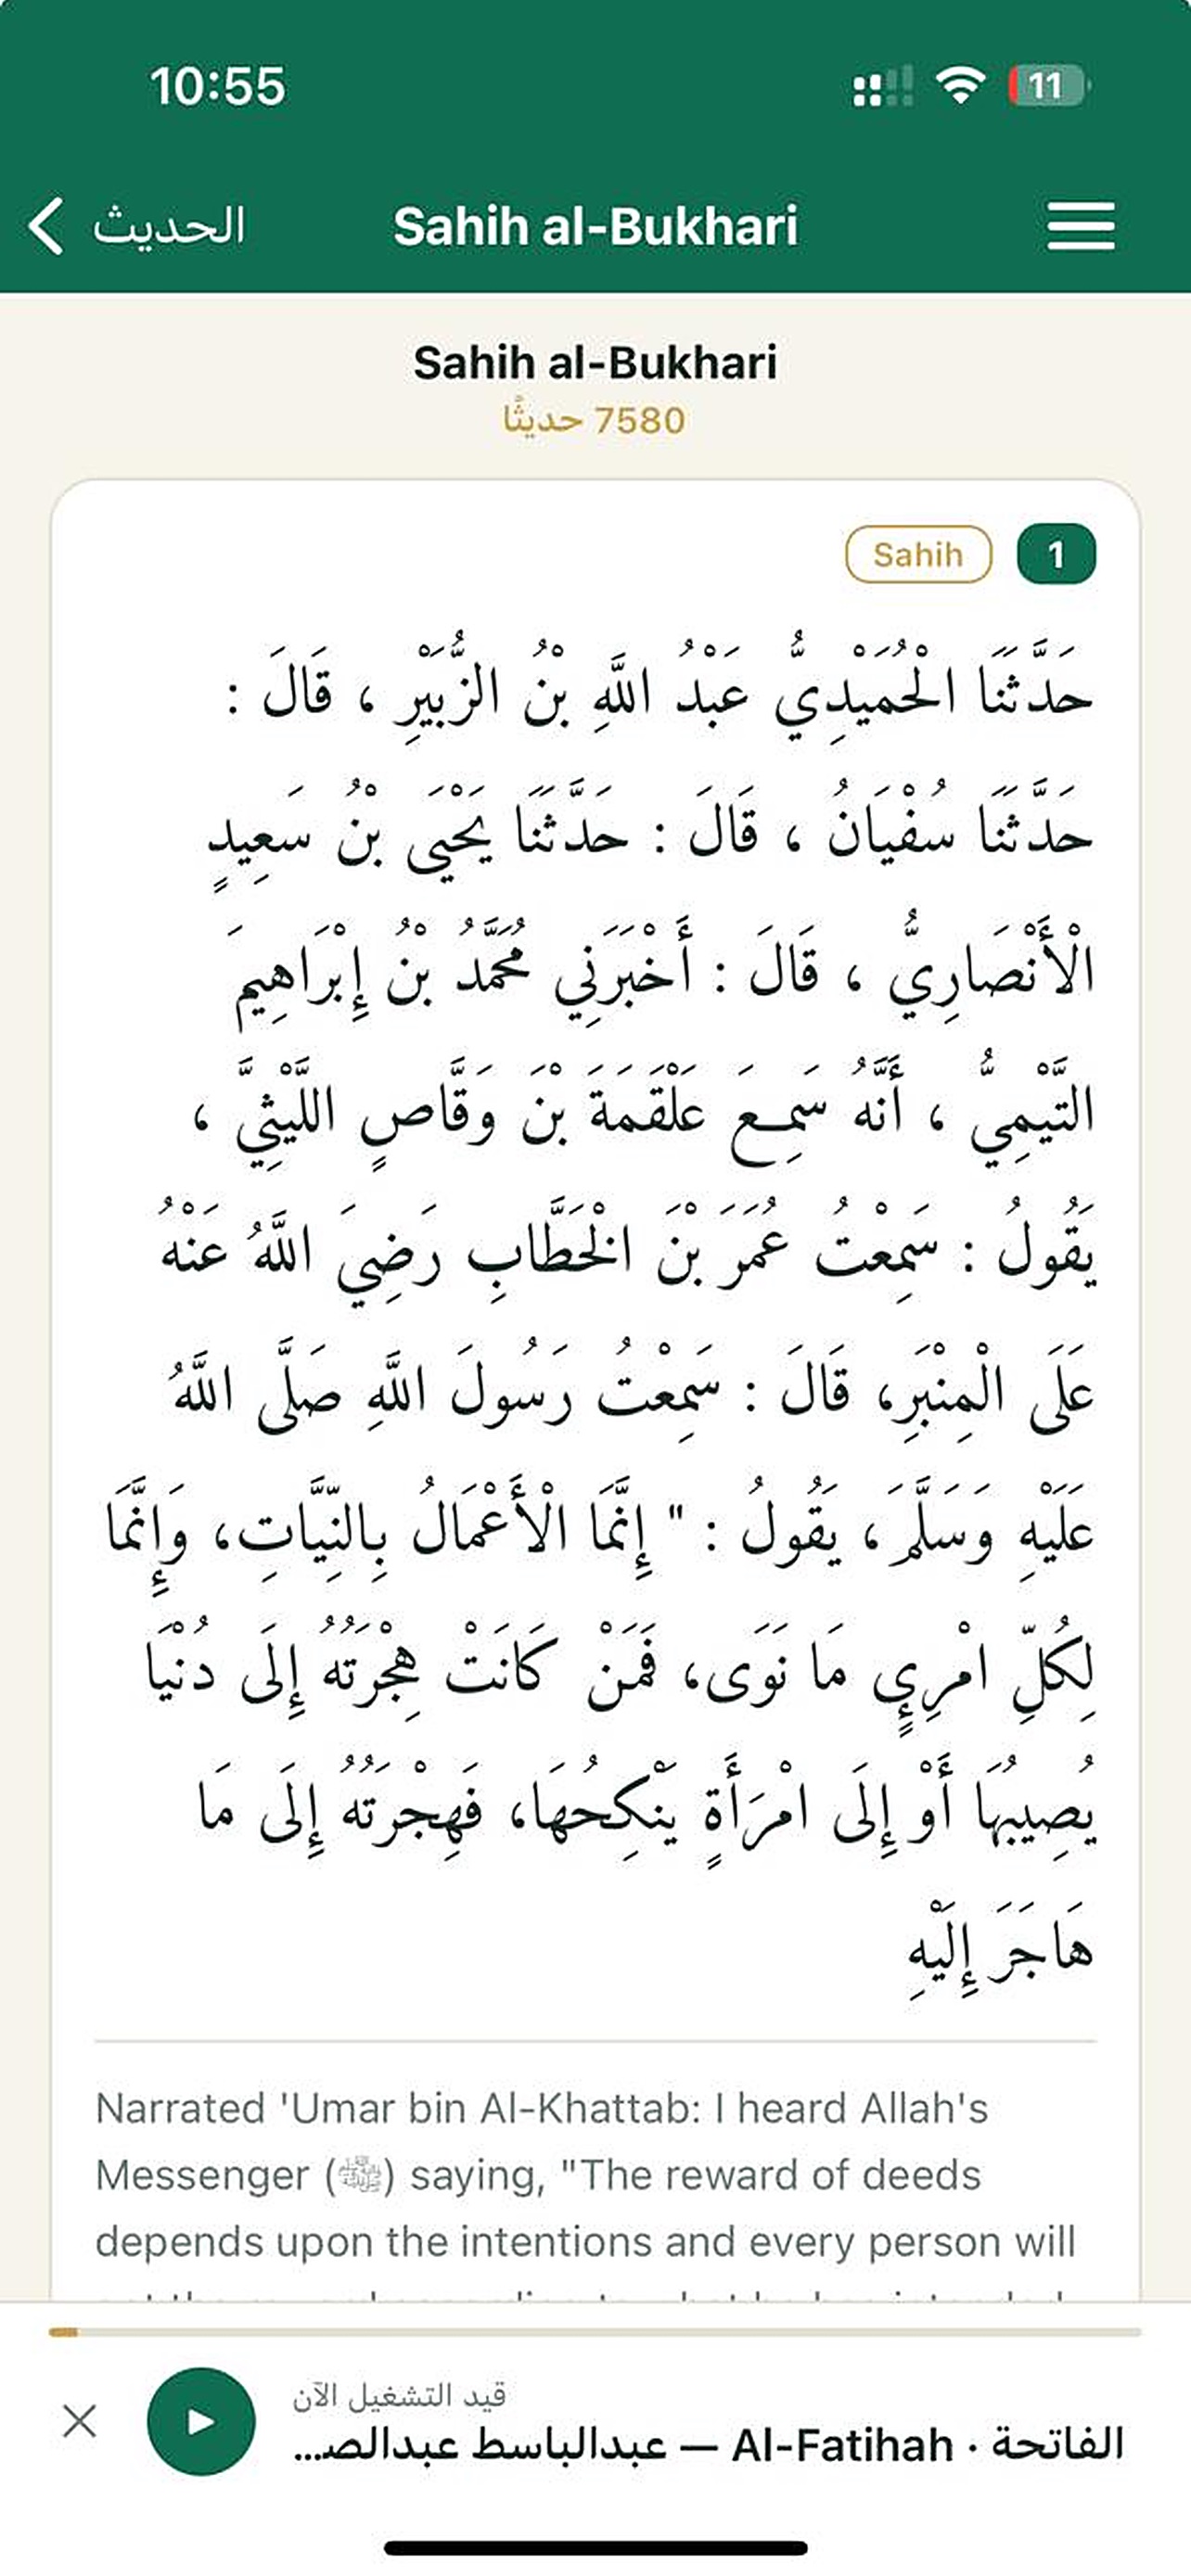 10:55
11
الحديث
Sahih al-Bukhari
Sahih al-Bukhari
7580 حديثًا
1
Sahih
حَدَّثَنَا الْحُمَيْدِيُّ عَبْدُ اللَّهِ بْنُ الزُّبَيْرِ ، قَالَ :
حَدَّثَنَا سُفْيَانُ ، قَالَ : حَدَّثَنَا يَحْيَى بْنُ سَعِيدٍ
الْأَنْصَارِيُّ ، قَالَ : أَخْبَرَنِي مُحَمَّدُ بْنُ إِبْرَاهِيمَ
التَّيْمِيُّ ، أَنَّهُ سَمِعَ عَلْقَمَةَ بْنَ وَقَّاصٍ اللَّيْثِيَّ ،
يَقُولُ : سَمِعْتُ عُمَرَ بْنَ الْخَطَّابِ رَضِيَ اللَّهُ عَنْهُ
عَلَى الْمِنْبَرِ، قَالَ : سَمِعْتُ رَسُولَ اللَّهِ صَلَّى اللَّهُ
عَلَيْهِ وَسَلَّمَ، يَقُولُ : " إِنَّمَا الْأَعْمَالُ بِالنِّيَّاتِ، وَإِنَّمَا
لِكُلِّ امْرِئٍ مَا نَوَى، فَمَنْ كَانَتْ هِجْرَتُهُ إِلَى دُنْيَا
يُصِيبُهَا أَوْ إِلَى امْرَأَةٍ يَنْكِحُهَا، فَهِجْرَتُهُ إِلَى مَا
هَاجَرَ إِلَيْهِ
Narrated 'Umar bin Al-Khattab: I heard Allah's
Messenger (ﷺ) saying, "The reward of deeds
depends upon the intentions and every person will
قيد التشغيل الآن
الفاتحة · Al-Fatihah — عبدالباسط عبدالصـ...